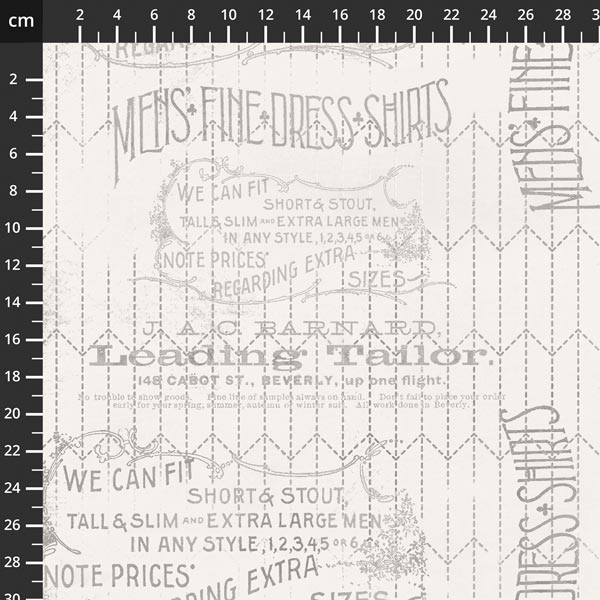 cm
2 4 6 8 10 12 14 16 18 20 22 24 26 28 3
2
4
6
8
10
12
14
16
18
20
22
24
26
28
30
REGARDING
MENS' FINE DRESS SHIRTS
WE CAN FIT
SHORT & STOUT,
TALL & SLIM AND EXTRA LARGE MEN
IN ANY STYLE, 1,2,3,4,5 OR 6
NOTE PRICES
REGARDING EXTRA
SIZES
J. A. C. BARNARD,
Leading Tailor.
148 CABOT ST., BEVERLY, up one flight.
No trouble to show goods. Fine line of samples always on hand. Don't fail to place your order
early for your spring, summer, autumn or winter suit. All work done in Beverly.
WE CAN FIT
SHORT & STOUT,
TALL & SLIM AND EXTRA LARGE MEN
IN ANY STYLE, 1,2,3,4,5 OR 6
NOTE PRICES
RDING EXTRA
SIZES
MENS' FINE
DRESS SHIRTS